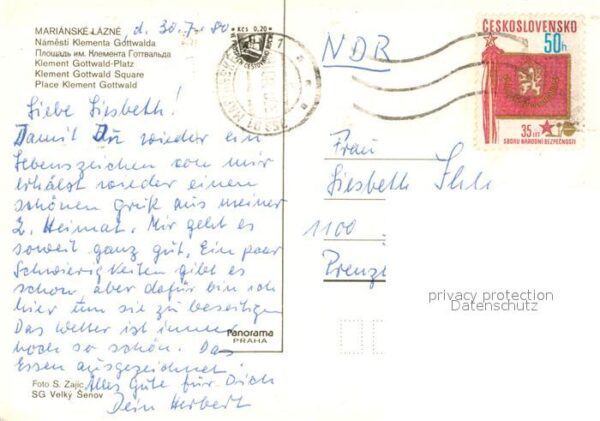 MARIÁNSKÉ LÁZNĚ d. 30.7.80
Náměstí Klementa Gottwalda
Площадь им. Клемента Готтвальда
Klement Gottwald-Platz
Klement Gottwald Square
Place Klement Gottwald
Liebe Liesbeth!
Damit Du wieder ein
Lebenszeichen von mir
erhälst wieder einen
schönen Gruß aus meiner
2. Heimat. Mir geht es
soweit ganz gut. Ein paar
Schwierigkeiten gibt es
schon aber dafür bin ich
hier um sie zu beseitigen
Das Wetter ist immer
noch so schön. Das
Essen ausgezeichnet.
Alles Gute für Dich
Dein Herbert
Foto S. Zajíc
SG Velký Šenov
Kčs 0,20
Panorama
PRAHA
353 01
NDR
ČESKOSLOVENSKO
50h
35 LET
SBORU NÁRODNÍ BEZPEČNOSTI
Frau
Liesbeth
1100
Prenzl
privacy protection
Datenschutz